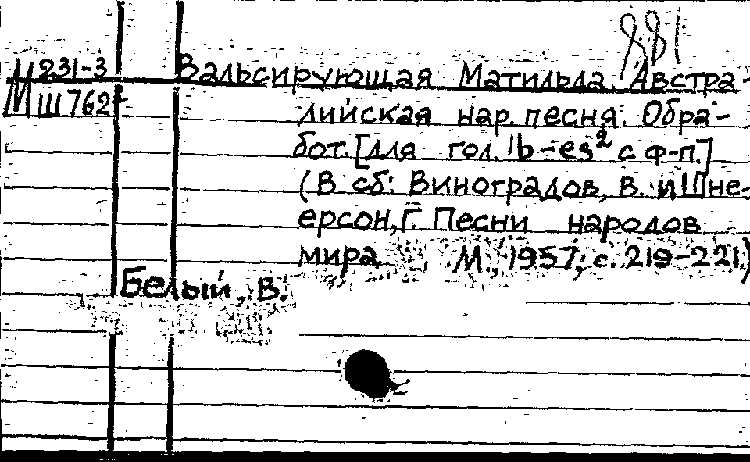 881
М 231-3 Вальсирующая Матильда. Австра-
Ш 762 лийская нар. песня. Обра-
бот. [для гол. b-es² с ф-п.]
(В сб: Виноградов, В. и Шне-
ерсон, Г. Песни народов
мира М., 1957, с. 219-221.)
Белый, В.